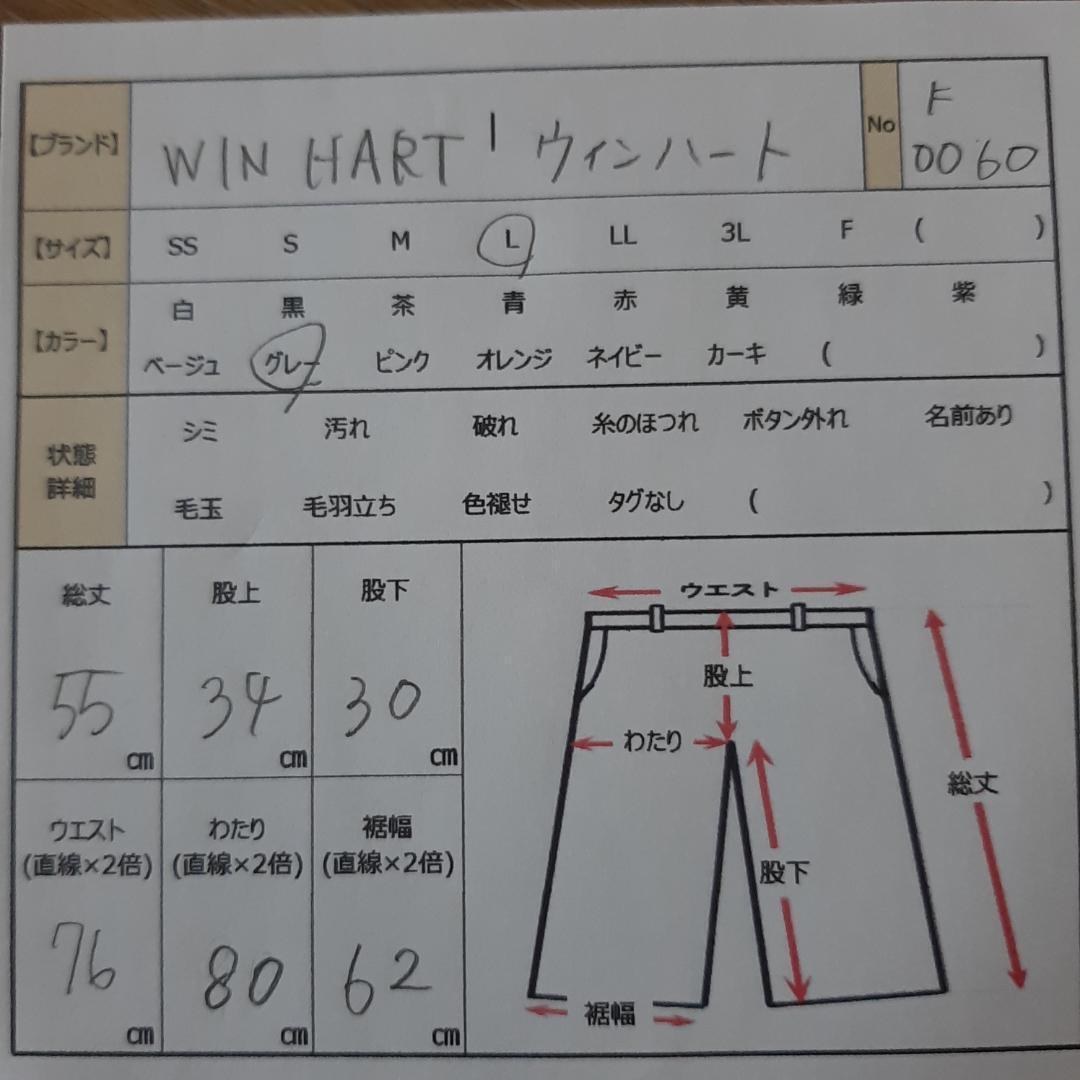 【ブランド】 WIN HART | ウィンハート No F 0060
【サイズ】 SS S M L LL 3L F ( )
【カラー】 白 黒 茶 青 赤 黄 緑 紫
ベージュ グレー ピンク オレンジ ネイビー カーキ ( )
状態詳細 シミ 汚れ 破れ 糸のほつれ ボタン外れ 名前あり
毛玉 毛羽立ち 色褪せ タグなし ( )
総丈 股上 股下
55 cm 34 cm 30 cm
ウエスト わたり 裾幅
(直線×2倍) (直線×2倍) (直線×2倍)
76 cm 80 cm 62 cm
ウエスト
股上
わたり
総丈
股下
裾幅